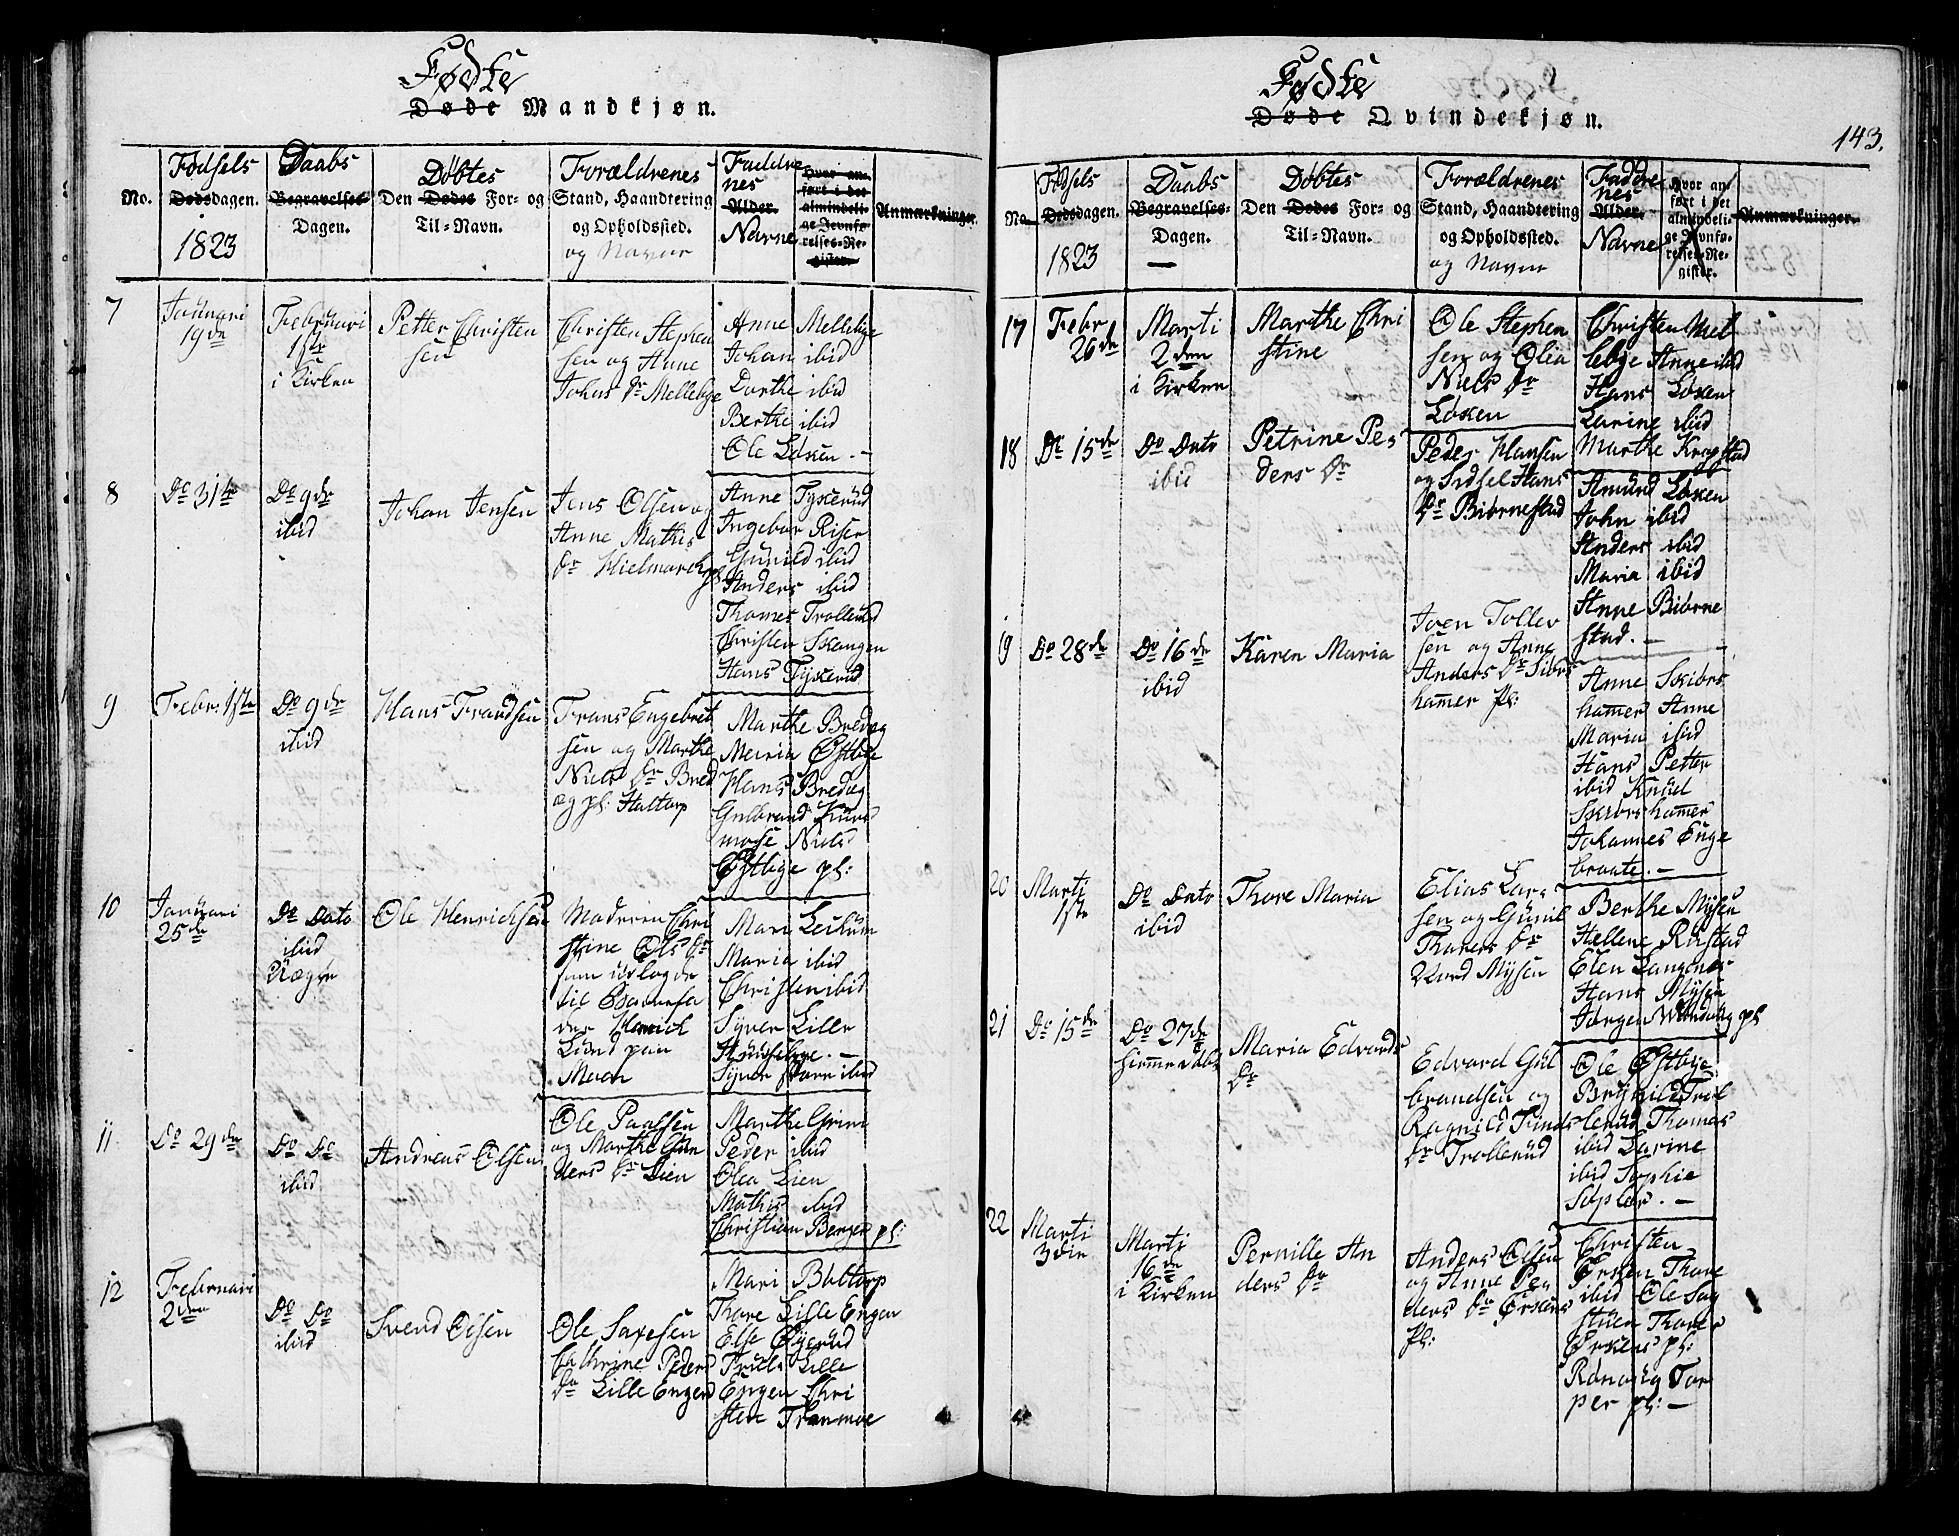 Fødte
Døde Mandkjøn.
No.
Fødsels
Dødsdagen.
1823
Daabs
Begravelses-
Dagen.
Døbtes
Den Dødes For- og
Til-Navn.
Forældrenes
Stand, Haandtering
og Opholdssted.
og Navne
Faddre
nes
Alder.
Navne
Hvor an-
ført i det
almindeli-
ge Jevnfø-
relses-Re-
gister.
Anmærkninger.
7
Januari
19de
Februari
1ste
i Kirken
Petter Christen
sen
Christen Stephen
sen og Anne
Johns Dr Mellebye
Anne Mellebye
Johan ibid
Dorthe ibid
Berthe ibid
Ole Løken. -
8
Do 31te
Do 9de
ibid
Johan Jensen
Jens Olsen og
Anne Mathis
Dr Hielmark
Anne Tyskerud
Ingebor Riser
Gunild ibid
Anders ibid
Thomes Trollerud
Christen Skangen
Hans Tyskerud
9
Febr: 1ste
Do 9de
ibid
Hans Frandsen
Frans Engebret
sen og Marthe
Niels Dr Bred
æg pl: Haltorp
Marthe Bredæg
Maria Østbye
Hans Bredæg
Gulbrand Kurs
mose Niels
Østbye pl:
10
Januari
25de
Do Dato
ibid
Uægte
Ole Henrichsen
Moderen Chri
stine Ols Dr
som udlagde
til Barnefa
der Henrich
Lund paa
Moen
Mari Leikum
Maria ibid
Christen ibid
Syver Lille
Syver ibid
11
Do 29de
Do Do
ibid
Andreas Olsen
Ole Paulsen
og Marthe Gun
ders Dr Lien
Marthe Grim
Peder ibid
Olea Lien
Mathis ibid
Christian Berger pl:
12
Februari
2den
Do Do
ibid
Svend Olsen
Ole Saxesen
Cathrine Peders
Dr Lille Engen
Mari Boltorp
Thore Lille Engen
Else Øyerud
Truls Lille
Engen Chri
sten Tranmoe
143.
Fødte
Døde Qvindekjøn.
No.
Fødsels
Dødsdagen.
1823
Daabs
Begravelses-
Dagen.
—
Døbtes
Den Dødes For- og
Til-Navn.
Forældrenes
Stand, Haandtering
og Opholdssted.
og Navne
Faddre
nes
Alder.
Navne
Hvor an-
ført i det
almindeli-
ge Jevnfø-
relses-Re-
gister.
Anmærkninger.
17
Febr
26de
Marti
2den
i Kirken
Marthe Chri
stine
Ole Stephen
sen og Olea
Niels Dr
Løken
Christen Mel
lebye Anne ibid
Hans Løken
Larine ibid
Marthe Kragstad
18
Do 15de
Do Dato
ibid
Petrine Pe
ders Dr
Peder Hansen
og Sidsel Hans
Dr Biørnestad
Amund Løken
John ibid
Anders ibid
Maria ibid
Anne Biørne
stad. -
19
Do 28de
Do 16de
ibid
Karen Maria
Joen Tollev
sen og Anne
Anders Dr Skibrs
hamer Pl:
Anne Skibrs
hamer Anne
Maria ibid
Hans Petter
ibid Knud
Skibrs hamer
Johannes Enge
braate. -
20
Marti
1ste
Do Dato
ibid
Thore Maria
Elias Lar
sen og Gunil
Thores Dr
Nord Mysen
Berthe Mysen
Hellene Rustad
Elen Langnes
Hans Mysen
Jørgen pl
21
Do 15de
Do 27de
hiemme døbt
Maria Edvards
Dr
Edvard Gul
brandsen og
Ragnild Trunds
Dr Trollerud
Ole Østbye
Brynild Trol
lerud Thomas
ibid Larine
ibid Sophie
Sopler. -
22
Marti
3die
Marti
16de
i Kirken
Pernille An
ders Dr
Anders Olsen
og Anne Pe
ders Dr Ørsken
Pl:
Christen
Ørsken Thore
ibid Ole Sag
stuen Thore
Ørsken pl:
Rønnaug Tor
per pl: -